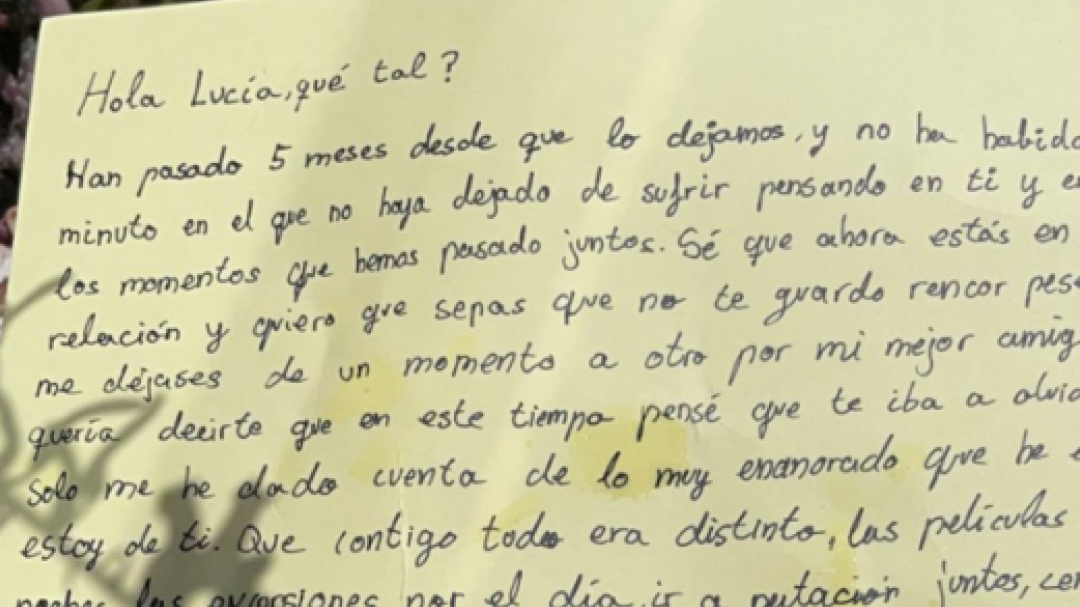 Hola Lucía, qué tal?
Han pasado 5 meses desde que lo dejamos, y no ha habido
minuto en el que no haya dejado de sufrir pensando en ti y en
los momentos que hemos pasado juntos. Sé que ahora estás en
relación y quiero que sepas que no te guardo rencor pese
me dejases de un momento a otro por mi mejor amig
quería decirte que en este tiempo pensé que te iba a olvid
solo me he dado cuenta de lo muy enamorado que he e
estoy de ti. Que contigo todo era distinto, las películas
noches las excursiones por el día, ir a natación juntos, cen